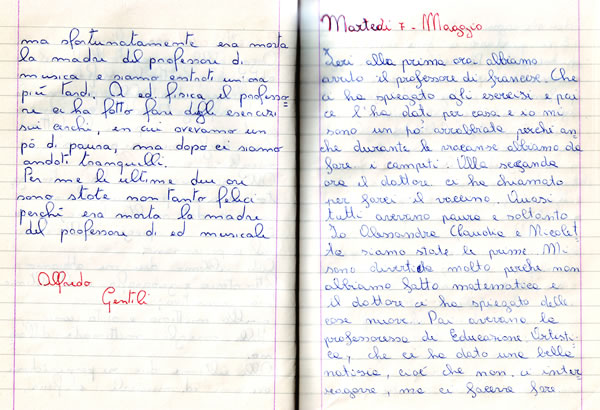 ma sfortunatamente era morta
la madre del professore di
musica e siamo entrati un'ora
più tardi. A ed. fisica il professo=
re ci ha fatto fare degli esercizi
sui cerchi, in cui avevamo un
pò di paura, ma dopo ci siamo
andati tranquilli.
Per me le ultime due ore
sono state non tanto felici
perché era morta la madre
del professore di ed musicale
Alfredo
Gentili
Martedì 7 - Maggio
Ieri alla prima ora abbiamo
avuto il professore di francese. Che
ci ha spiegato gli esercizi e poi
ce l'ha dati per casa e io mi
sono un po' arrabbiata perché an
che durante le vacanze abbiamo da
fare i compiti. Alla seconda
ora il dottore ci ha chiamato
per farci il vaccino. Quasi
tutti avevano paura e soltanto
Io Alessandra Claudia e Nicolet
ta siamo state le prime. Mi
sono divertita molto perché non
abbiamo fatto matematica e
il dottore ci ha spiegato delle
cose nuove. Poi avevamo la
professoressa di Educazione Artisti-
ca, che ci ha dato una bella
notizia, cioè che non ci inter
rogava, ma ci faceva fare